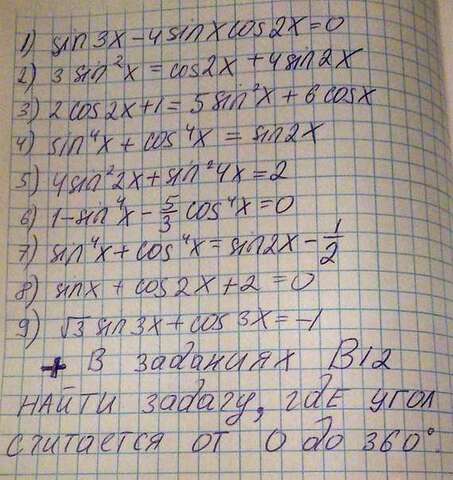 1) sin3x-4sinxcos2x=0
2) 3sin²x=cos2x+4sin2x
3) 2cos2x+1=5sin²x+6cosx
4) sin⁴x+cos⁴x=sin2x
5) 4sin²2x+sin²4x=2
6) 1-sin⁴x-5/3cos⁴x=0
7) sin⁴x+cos⁴x=sin2x-1/2
8) sinx+cos2x+2=0
9) √3sin3x+cos3x=-1
+ В заданиях В12
найти задачу, где угол
считается от 0 до 360°.